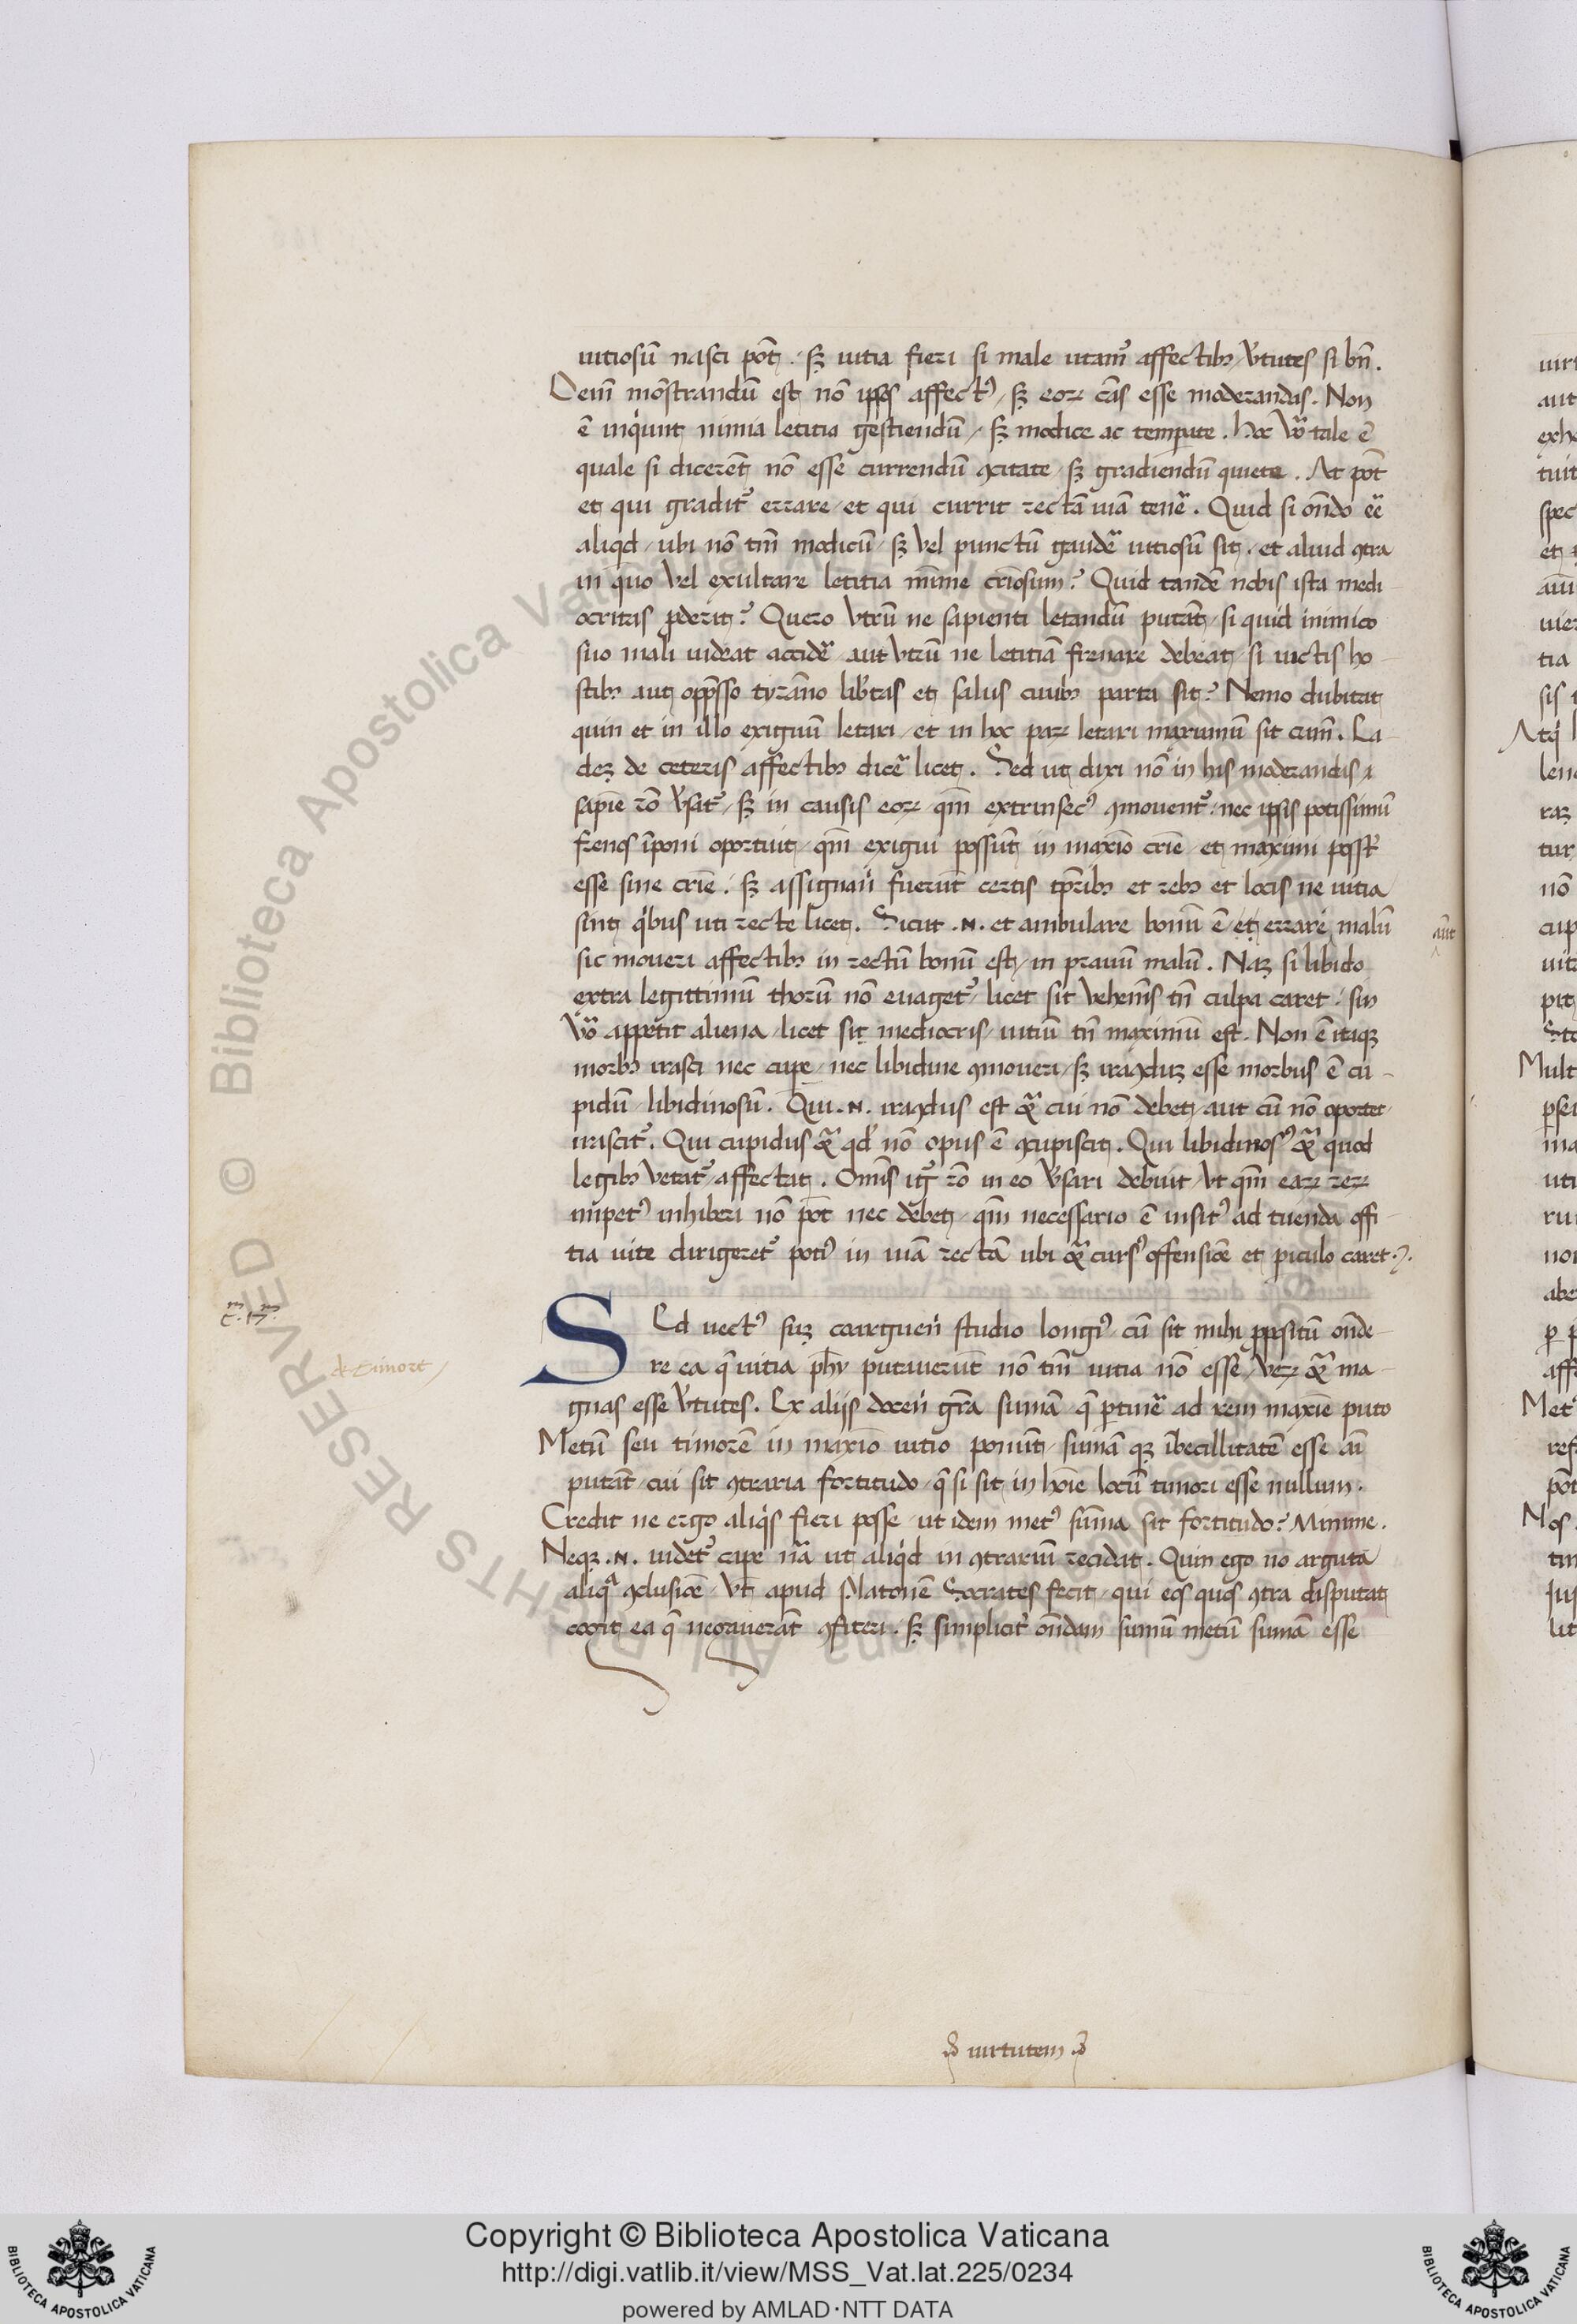 uitiosũ nasci põt. sꝫ uitia fieri si male utam̃ affectibꝰ / v̓tutes si bñ.
Dein̄ mõstrandũ est nõ ipsos affectꝰ / sꝫ eoꝝ cãs esse moderandas. Non
ẽ inqͥunt nimia letitia gestiendũ / sꝫ modice ac temperate. Hoc võ tale ẽ
quale si dicerẽt nõ esse currendũ ꝯcitate / sꝫ gradiendũ quiete. At põt
et qui gradit᷑ errare / et qui currit rectã uiã tenẽ. Quid si oñdo eẽ
aliqd / ubi nõ tm̃ modicũ / sꝫ vel punctũ gaudẽ uitiosũ sit. et aliud ꝯtra
in quo vel exultare letitia mĩme crĩosum? Quid tandẽ nobis ista medi-
ocritas ꝓderit? Quero vtrũ ne sapienti letandũ putãt / si quid inimico
suo mali uideat accidẽ / aut vtrũ ne letitiã frenare debeat / si uictis ho-
stibꝰ aut opp̃sso tyrãno lib̓tas et salus ciuibꝰ parta sit? Nemo dubitat
quin et in illo exiguũ letari / et in hoc paꝝ letari maximũ sit crim̃. Ea-
deꝫ de ceteris affectibꝰ dicẽ licet. Sed ut dixi nõ in his moderandis
sapiẽ rõ v̓sat᷑ / sꝫ in causis eoꝝ / qm̃ extrinsecꝰ ꝯmouent᷑. nec ipsis potissimũ
frenos ĩponi oportuit / qm̃ exigui possunt in maxĩo crĩe / et maximi possẽt
esse sine crĩe. sꝫ assignari fuerũt certis tp̃ribꝰ et rebꝰ et locis ne uitia
sint qͥbus uti recte licet. Sicut .N. et ambulare bonũ ẽ et errare malũ
aũt
sic moueri affectibꝰ in rectũ bonũ est / in prauũ malũ. Naꝫ si libido
extra legittimũ thorũ non euaget᷑ / licet sit vehemẽs tñ culpa caret. sin
võ appetit aliena / licet sit mediocris / uitiũ tñ maximũ est. Non ẽ itaqꝫ
morbꝰ irasci nec cupe / nec libidine ꝯmoueri / sꝫ iracũduꝫ esse morbus ẽ cu-
pidũ / libidinosũ. Qui .N. iracũdus est et̃ cui nõ debet / aut cũ nõ oportet
irascit᷑. Qui cupidus et̃ qd̓ nõ opus ẽ ꝯcupiscit. Qui libidinosꝰ et̃ quod
legibꝰ vetat᷑ affectat. Omĩs igr̃ rõ in eo v̓sari debuit / vt qm̃ eaꝝ reꝝ
impetꝰ inhiberi nõ põt nec debet / qm̃ necessario ẽ insitꝰ ad tuenda offi-
tia uite dirigeret᷑ potiꝰ in uiã rectã ubi et̃ cursꝰ offensiõe et piculo caret.
SEd uectꝰ suꝫ coarguen̓ studio longiꝰ / cũ sit mihi ppositũ oñde-
de timore
re ea q̃ uitia phỹ putauerũt nõ tm̃ uitia nõ esse / veꝝ et̃ ma-
gnas esse v̓tutes. Ex alijs docen̓ gr̃a sumã / q̃ ptinẽ ad rem maxĩe puto
Metũ seu timorẽ in maxĩo uitio ponunt / sumã qꝫ ĩbecillitatẽ esse aĩ
putãt / cui sit ꝯtraria fortitudo / q̃ si sit in hoĩe locũ timori esse nullum.
Credit ne ergo aliqͥs fieri posse / ut idem metꝰ sũma sit fortitudo? Minime.
Neqꝫ .N. uidet᷑ cape nã ut aliqͥd in ꝯtrariũ recidat. Quin ego nõ arguta
aliqͣ ꝯclusiõe / vt apud Platonẽ Socrates fecit / qui eos quos ꝯtra disputat
cogit ea q̃ negauerãt ꝯfiteri. sꝫ simplicit̓ oñdam sumũ metũ sumã esse
uirtutem
Copyright © Biblioteca Apostolica Vaticana
http://digi.vatlib.it/view/MSS_Vat.lat.225/0234
powered by AMLAD·NTT DATA